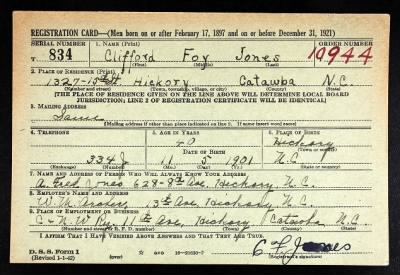 REGISTRATION CARD—(Men born on or after February 17, 1897 and on or before December 31, 1921)
SERIAL NUMBER 1. NAME (Print) ORDER NUMBER
T 834 Clifford Foy Jones 10944
(First) (Middle) (Last)
2. PLACE OF RESIDENCE (Print)
1327-15th St. Hickory Catawba N.C.
(Number and street) (Town, township, village, or city) (County) (State)
[THE PLACE OF RESIDENCE GIVEN ON THE LINE ABOVE WILL DETERMINE LOCAL BOARD
JURISDICTION; LINE 2 OF REGISTRATION CERTIFICATE WILL BE IDENTICAL]
3. MAILING ADDRESS
Same
[Mailing address if other than place indicated on line 2. If same insert word same]
4. TELEPHONE 5. AGE IN YEARS 6. PLACE OF BIRTH
40 Hickory
DATE OF BIRTH (Town or county)
334 J 11 5 1901 N.C.
(Exchange) (Number) (Mo.) (Day) (Yr.) (State or country)
7. NAME AND ADDRESS OF PERSON WHO WILL ALWAYS KNOW YOUR ADDRESS
A. Fred Jones 628-9th Ave, Hickory, N.C.
8. EMPLOYER'S NAME AND ADDRESS
W.M. 13th Ave, Hickory, N.C.
9. PLACE OF EMPLOYMENT OR BUSINESS
C. & N.W. Ry. 11th Ave, Hickory Catawba N.C.
(Number and street or R. F. D. number) (Town) (County) (State)
I AFFIRM THAT I HAVE VERIFIED ABOVE ANSWERS AND THAT THEY ARE TRUE.
D. S. S. Form 1
(Revised 1-1-42) (over) C F Jones
(Registrant's signature)